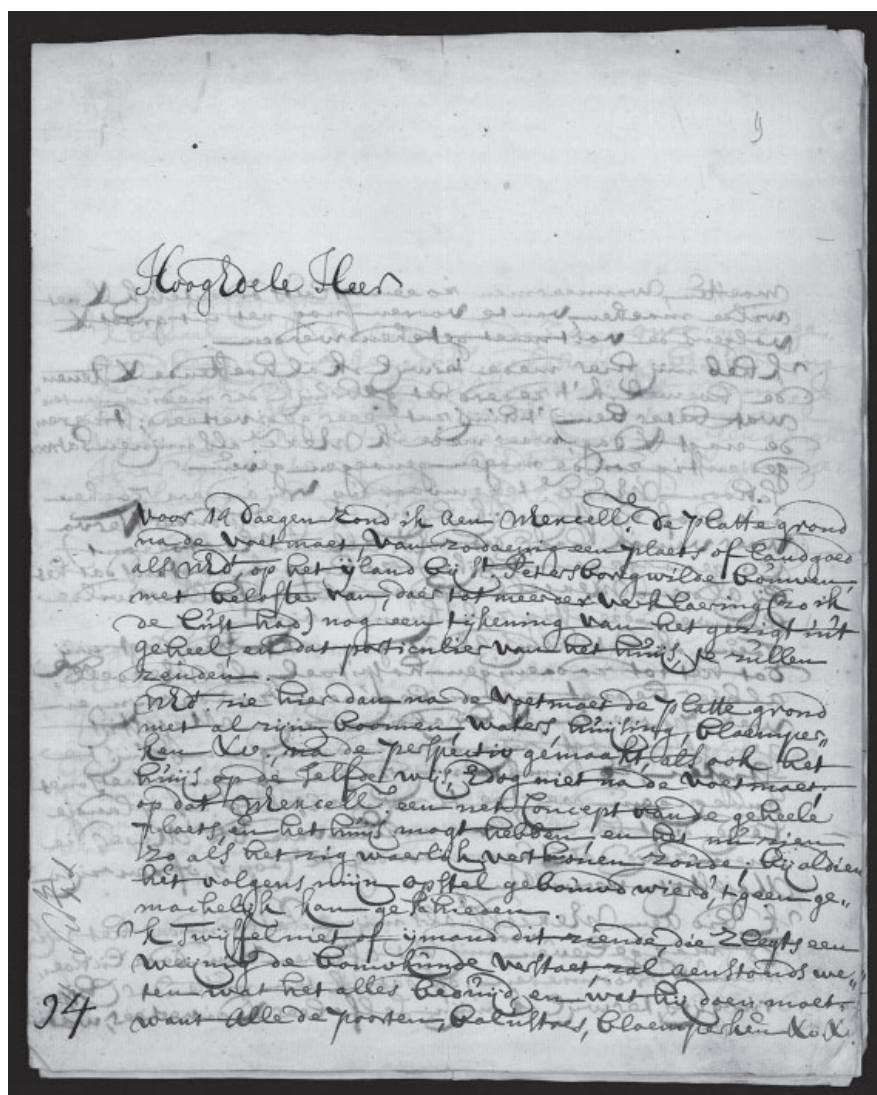 9
HoogEdele Heer
Voor 14 daegen zond ik aen Mencell. de platte grond
na de voetmaet, van zodaenig een plaets of landgoed
als UEd. op het ijland bij St. Petersborg wilde bouwen
met belofte van, daer tot meerder verklaering (zo ik
de lust had) nog een tijkening van het gezigt int
geheel, en dat particulier van het huijs, te zullen
zenden.
UEd. zie hier dan na de voetmaet de platte grond
met al zijn boomen waters, huijsing, bloemper„
ken &c., na de perspectiv gemaakt, als ook het
huijs op de selfde wijs, Dog niet na de voetmaet,
op dat Mencell. een net concept van de geheele
plaets, en het huijs magt hebben, en het nu zien
zo als het zig waerlijk vertoonen zoude, bij aldien
het volgens mijn opstel gebouwd wierd, 't geen ge„
mackelijk kan geschieden.
Ik twijffel niet of ijmand dit ziende, die slegts een
weijnig de bouwkunde verstaet zal aenstonds we„
ten wat het alles beduijd, en wat hij doen moet
want alle de poorten, balustres, bloemperken &c. &c.
94